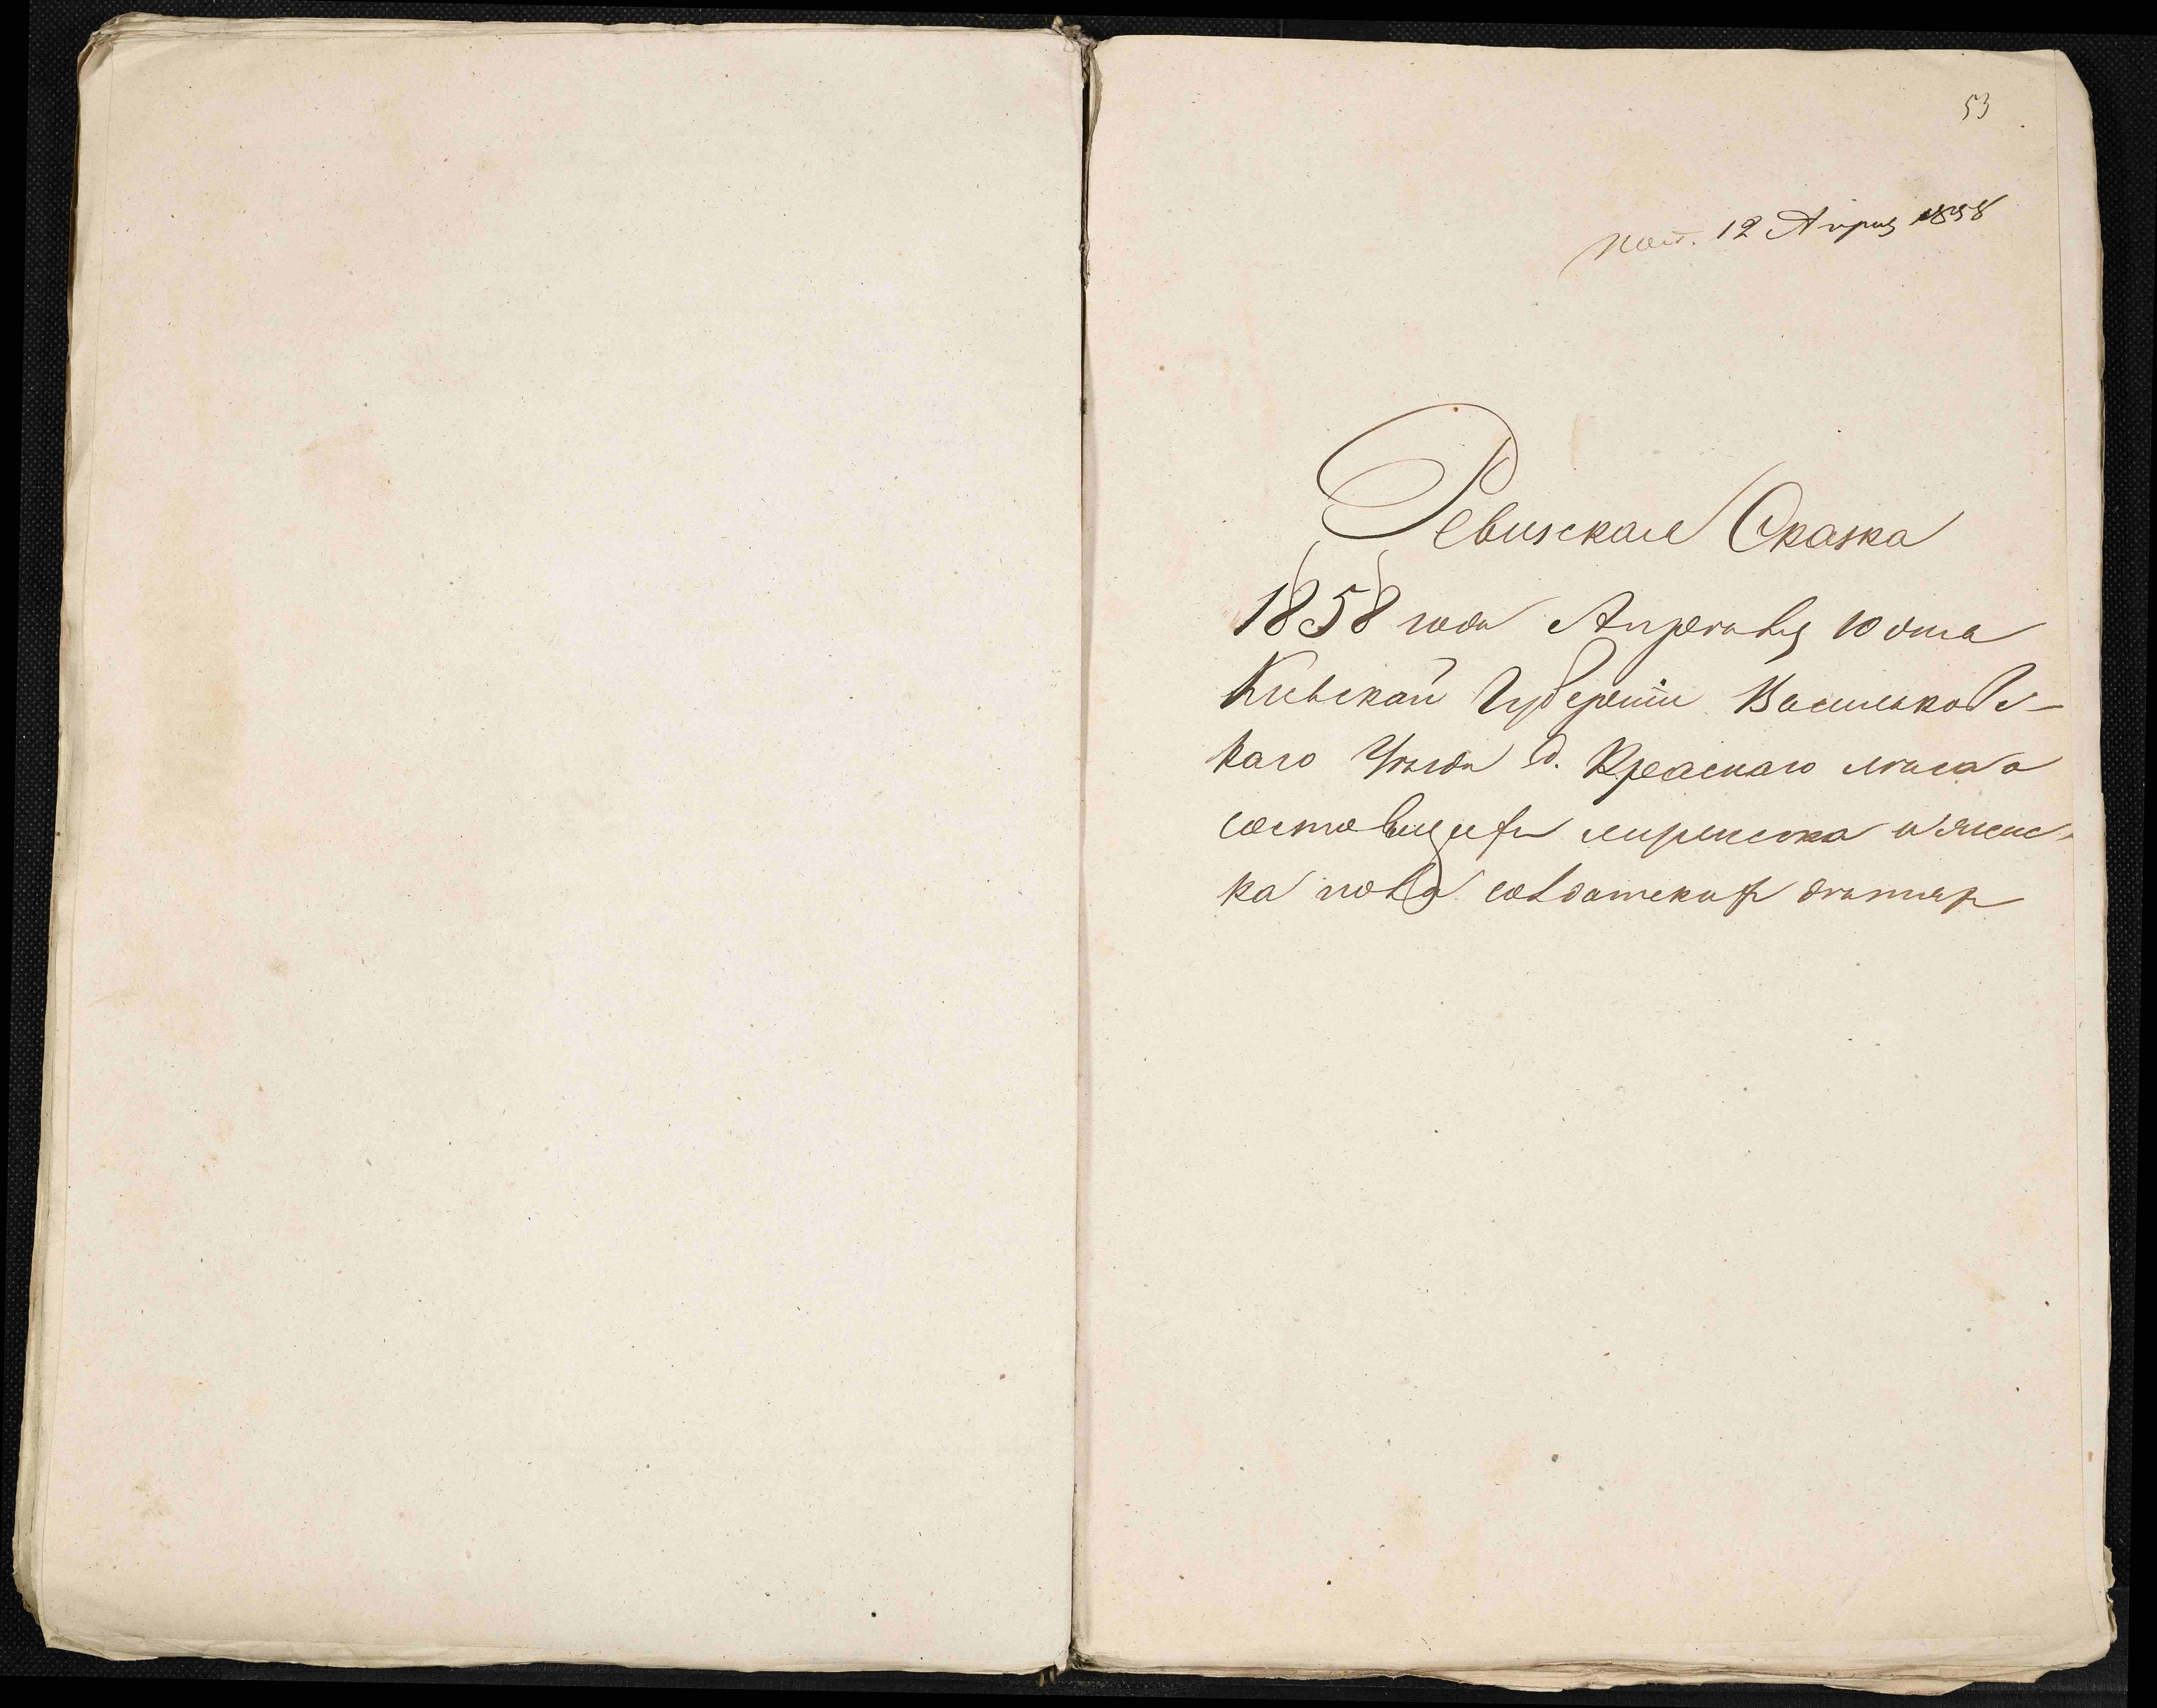 53
пол. 12 Априля 1858
Ревизская Сказка
1858 года Апреля 10 дня
Киевской Губернии Васильковс-
каго Уѣзда д. Краснаго лѣса о
состоящихъ мужеска и женс-
ка пола солдатскихъ дѣтяхъ